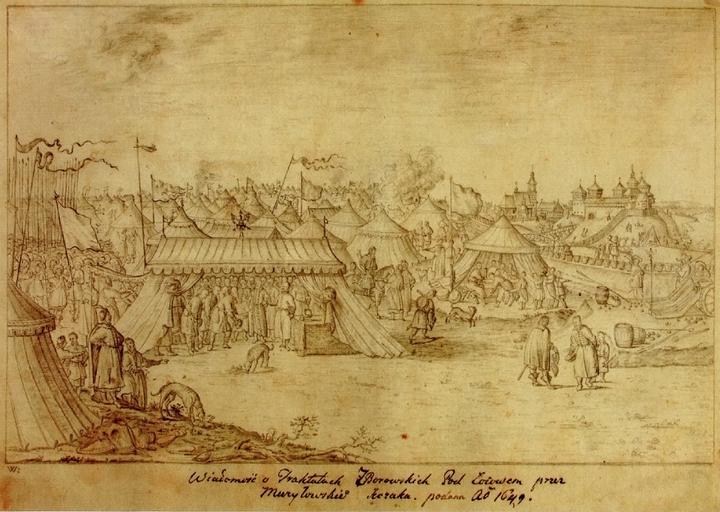 W:
Wiadomość o Traktatach Zborowskich Pod Łoiowem przez
Muryłowskie° Kozaka. podana A° 1649.